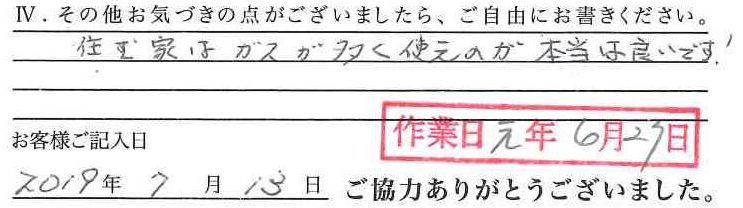 Ⅳ．その他お気づきの点がございましたら、ご自由にお書きください。
住む家はガスが多く使えのが本当は良いです!
お客様ご記入日
作業日元年6月27日
2019年7月13日 ご協力ありがとうございました。